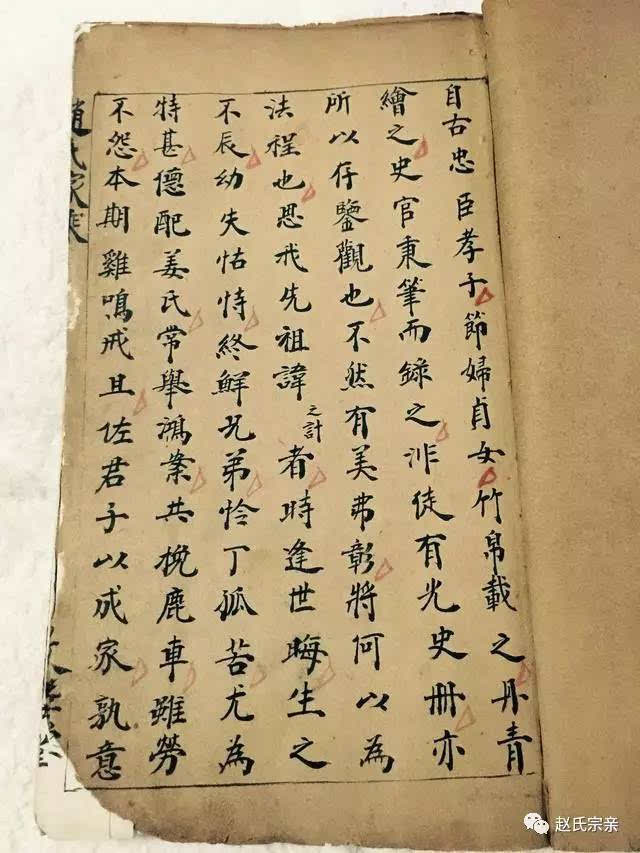 自古忠臣孝子節婦貞女竹帛載之丹青
繪之史官秉筆而錄之非徒有光史冊亦
所以存鑒觀也不然有美弗彰將何以為
法程也思我先祖諱之計者時逢世晦生之
不辰幼失怙恃終鮮兄弟怜丁孤苦尤為
特甚德配姜氏常舉鴻案共挽鹿車雖勞
不怨本期雞鳴戒旦佐君子以成家孰意
趙氏家乘
赵氏宗亲